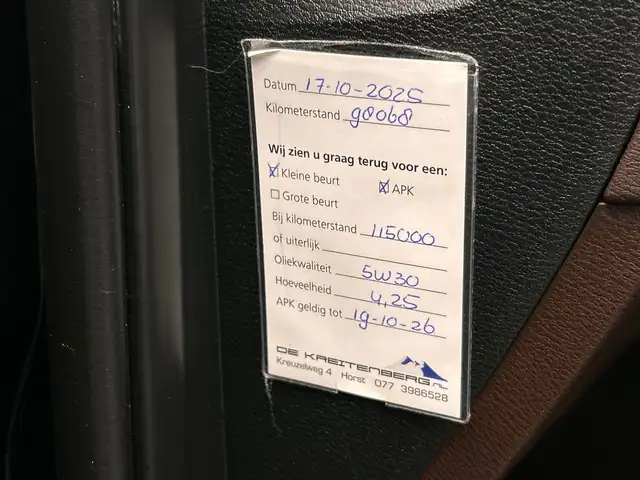 Datum 17-10-2025
Kilometerstand 98068
Wij zien u graag terug voor een:
☒ Kleine beurt ☒ APK
☐ Grote beurt
Bij kilometerstand 115000
of uiterlijk
Oliekwaliteit 5W30
Hoeveelheid 4,25
APK geldig tot 19-10-26
DE KREITENBERG.NL
Kreuzelweg 4 Horst 077 3986528